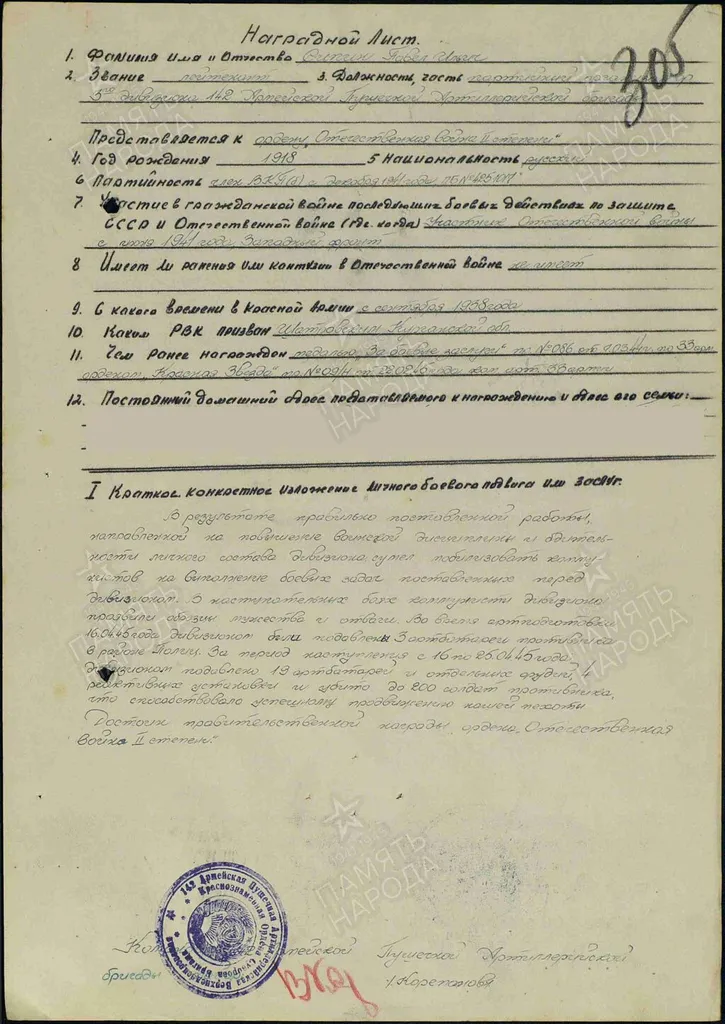 305
Наградной Лист.
1. Фамилия имя и Отчество Павел Ильич
2. Звание лейтенант 3. Должность, часть партийный
5го дивизиона 142 Армейской Пушечной Артиллерийской бригады
Представляется к ордену „Отечественная война II степени"
4. Год рождения 1918 5 Национальность русский
6. Партийность член ВКП(б) с декабря 1941 года ПБ№
7. Участие в гражданской войне последующих боевых действиях по защите
СССР и Отечественной войне (где, когда) Участник Отечественной войны
с июня 1941 года, Западный фронт
8 Имеет ли ранения или контузии в Отечественной войне не имеет
9. С какого времени в Красной Армии с сентября 1938 года
10. Каким РВК призван Шатровским Курганской обл.
11. Чем ранее награжден медалью „За боевые заслуги" пр №086 от по 33 арм
орденом „Красная Звезда" пр № от года ком. арт. 33 армии
12. Постоянный домашний адрес представляемого к награждению и адрес его семьи:
I Краткое, конкретное изложение личного боевого подвига или заслуг.
В результате правильно поставленной работы,
направленной на повышение воинской дисциплины и бдитель-
ности личного состава дивизиона, сумел мобилизовать комму-
нистов на выполнение боевых задач поставленных перед
дивизионом. В наступательных боях коммунисты дивизиона
проявили образцы мужества и отваги. Во время артподготовки
16.04.45 года, дивизионом была подавлена 3 артбатареи противника
в районе За период наступления с 16 по 25.04.45 года,
дивизионом подавлено 19 артбатарей и отдельных орудий, 4
реактивных установки и убито до 200 солдат противника,
что способствовало успешному продвижению нашей пехоты
Достоин правительственной награды ордена „Отечественная
Война II степени".
142 Армейская Пушечная Артиллерийская
Краснознаменная Ордена Суворова Бригада
Армейской Пушечной Артиллерийской
бригады /Корепанов/
ПАМЯТЬ
НАРОДА